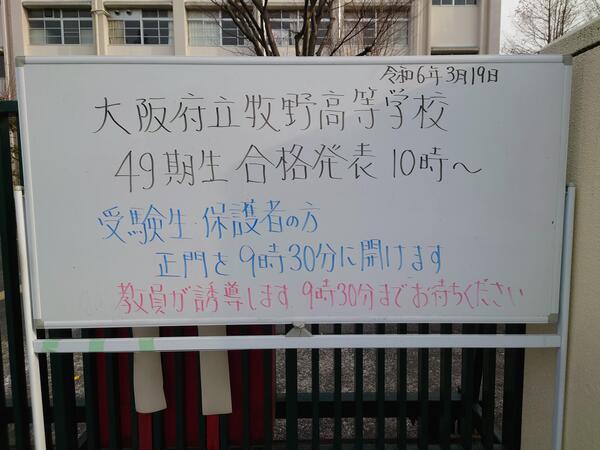 令和6年3月19日
大阪府立牧野高等学校
49期生 合格発表 10時～
受験生・保護者の方
正門を9時30分に開けます
教員が誘導します 9時30分までお待ちください